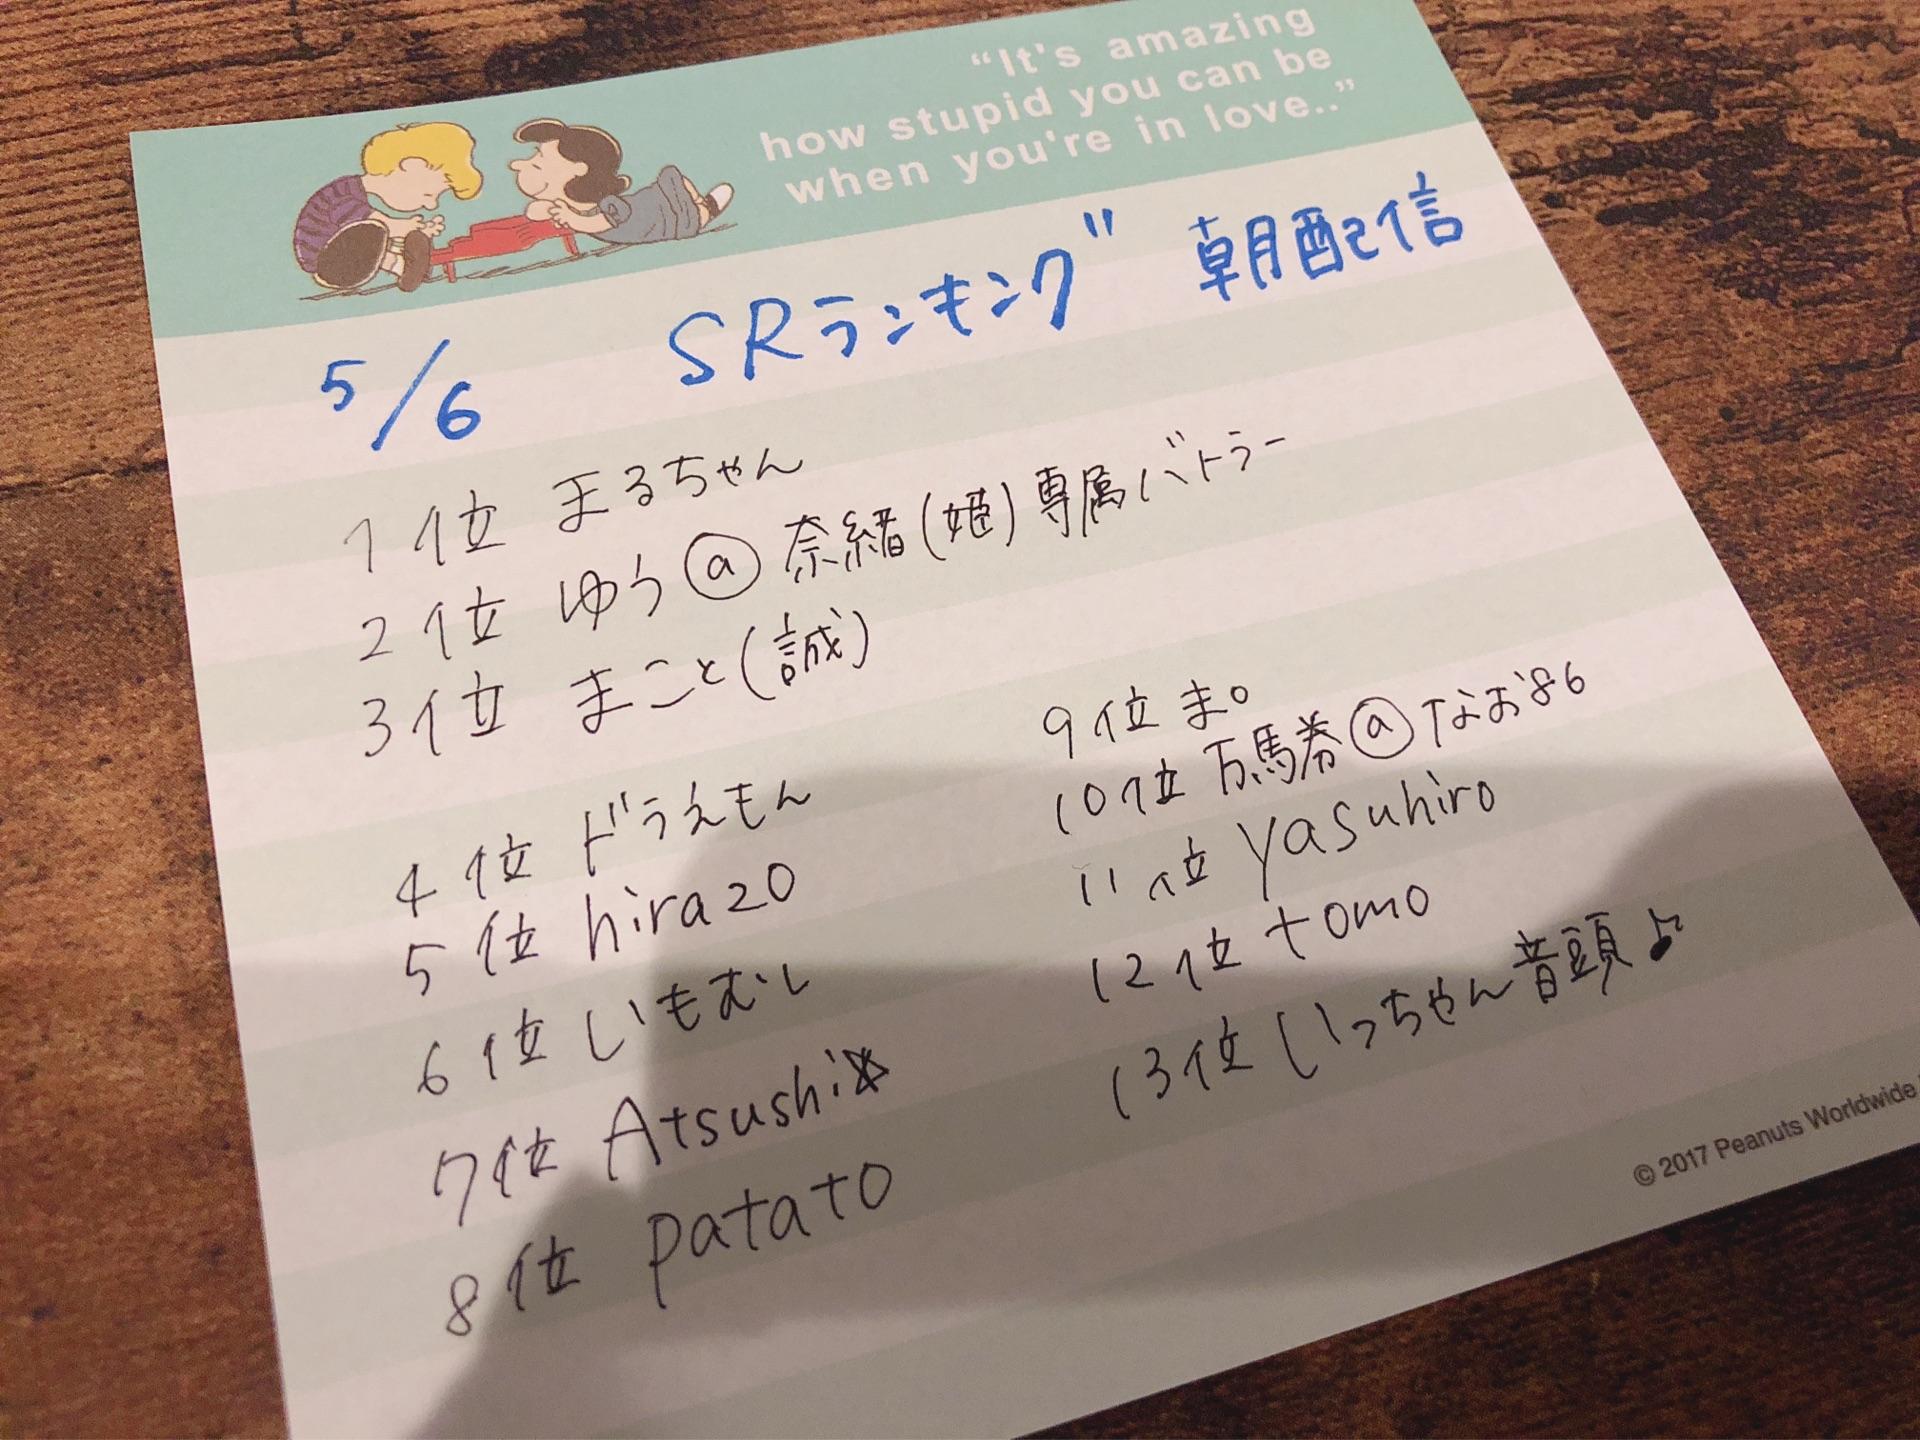 "It's amazing
how stupid you can be
when you're in love.."
5/6 SRランキング 朝配信
1位 まるちゃん
2位 ゆうⓐ奈緒(姫)専属バトラー
3位 まこと(誠)
4位 ドラえもん
5位 hira20
6位 いもむし
7位 Atsushi☆
8位 patato
9位 ま。
10位 万馬券ⓐなお86
11位 yasuhiro
12位 tomo
13位 いっちゃん音頭♪
© 2017 Peanuts Worldwide